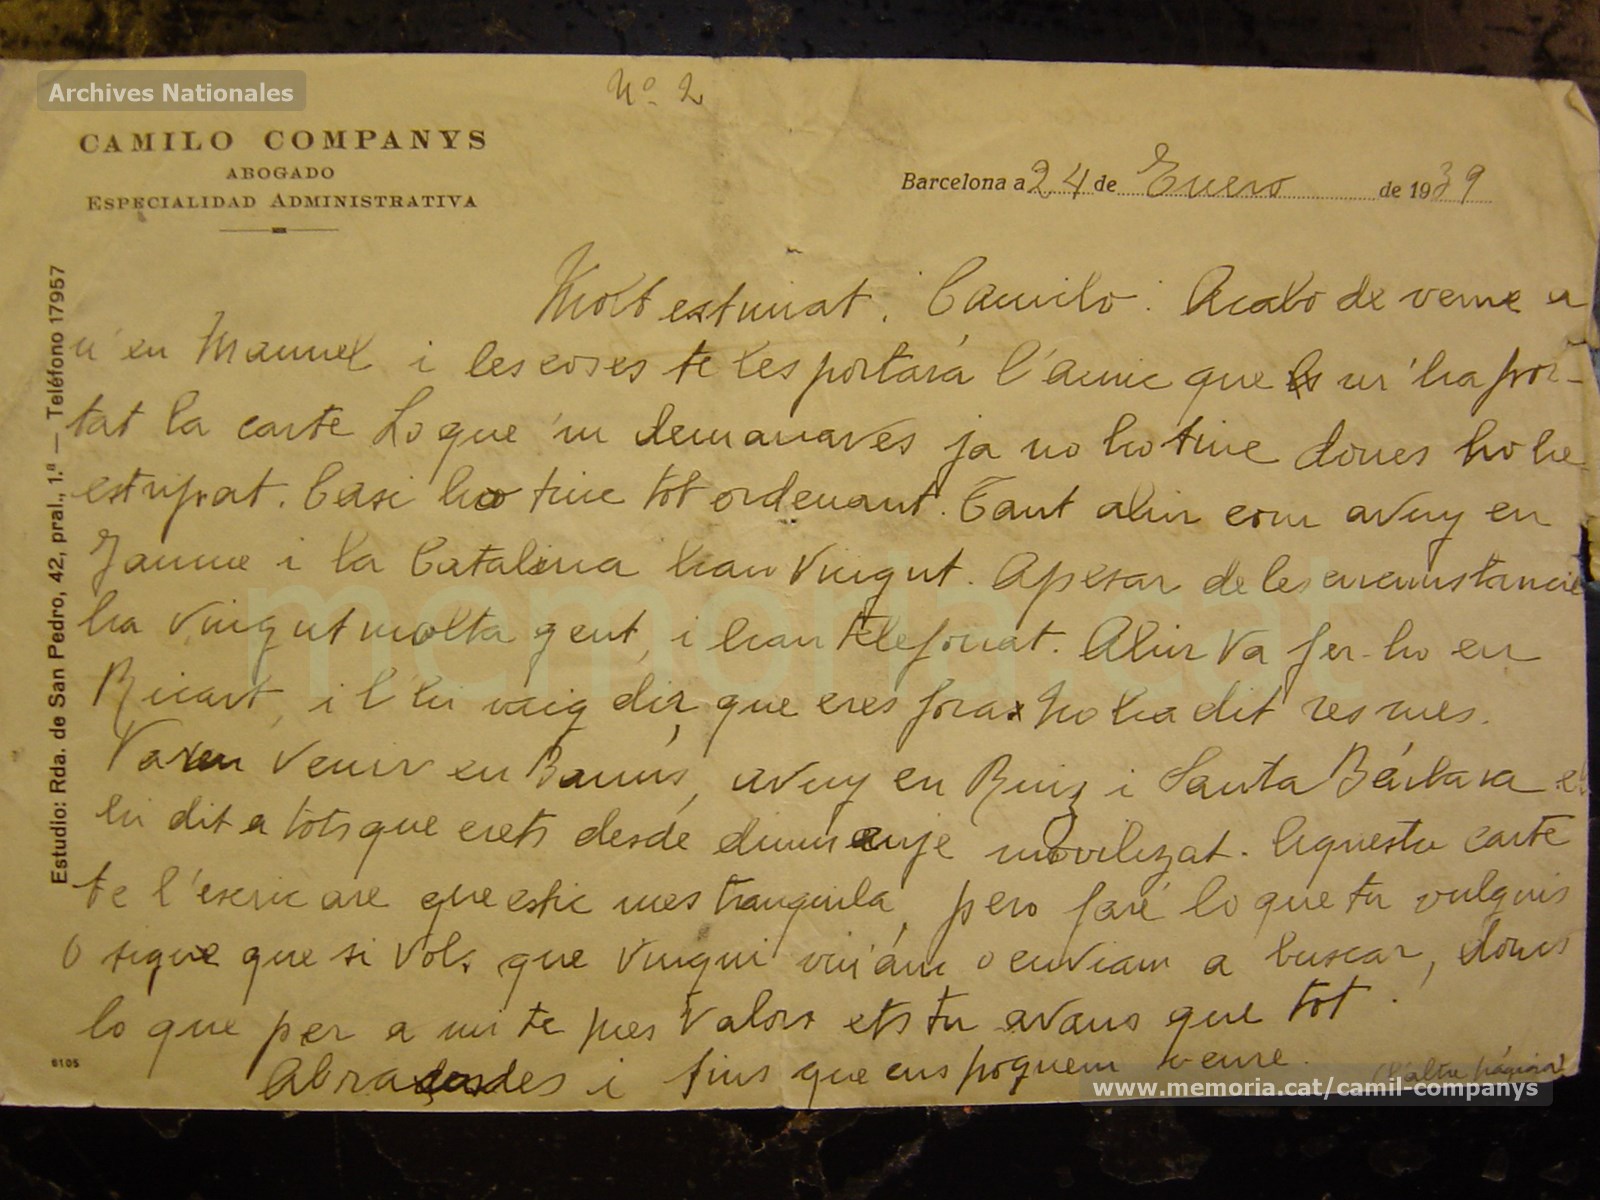 Archives Nationales
Nº 2
CAMILO COMPANYS
ABOGADO
ESPECIALIDAD ADMINISTRATIVA
Barcelona a 24 de Enero de 1939
Estudio: Rda. de San Pedro, 42, pral., 1.ª — Teléfono 17957
Molt estimat Camilo: Acabo de veure a
n'en Manuel i les coses te les portará l'amic que m'ha por-
tat la carte Lo que 'm demanaves ja no ho tinc doncs ho he
estripat. Casi ho tinc tot ordenant. Tant ahir com avuy en
Jaume i la Catalina han vingut. Apesar de les circumstancies
ha vingut molta gent, i han telefonat. Ahir va fer-ho en
Ricart, i l hi vaig dir, que eres fora No ha dit res mes.
Varen venir en Bamús, avuy en Ruiz i Santa Bárbara
hi dit a tots que erets desde diumenje movilizat. Aquesta carte
te l'escric are que estic mes tranquila, pero faré lo que tu vulguis
O sigue que si vols que vingui viníam o enviam a buscar, doncs
lo que per a mi te mes valors ets tu avans que tot.
Abrasades i fins que ens poguem veure.
(l'altre página)
6105
memoria.cat
www.memoria.cat/camil-companys